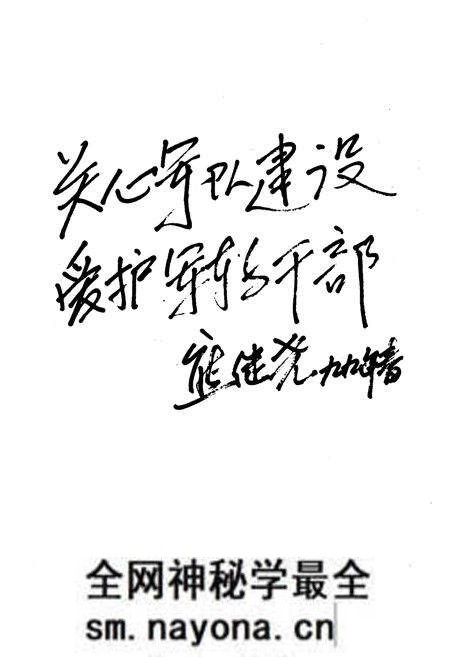 关心军队建设
爱护军转干部
九九年春
全网神秘学最全
sm.nayona.cn